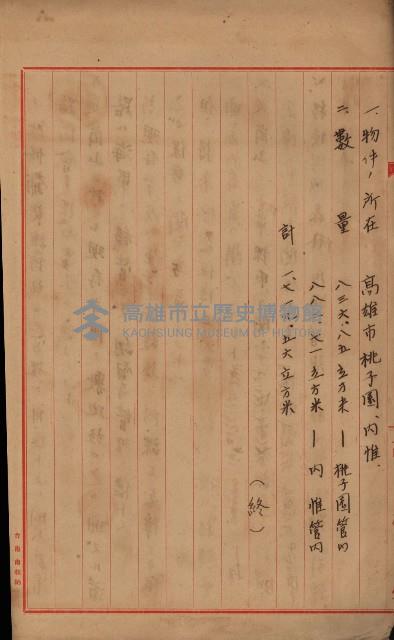 一、物件ノ所在　高雄市桃子園、内惟、
二、數量　八三六、八五立方米 — 桃子園管内
八八二、七一立方米 — 内惟管内
計　一、七一九、五六立方米
（終）
高雄市立歷史博物館
KAOHSIUNG MUSEUM OF HISTORY